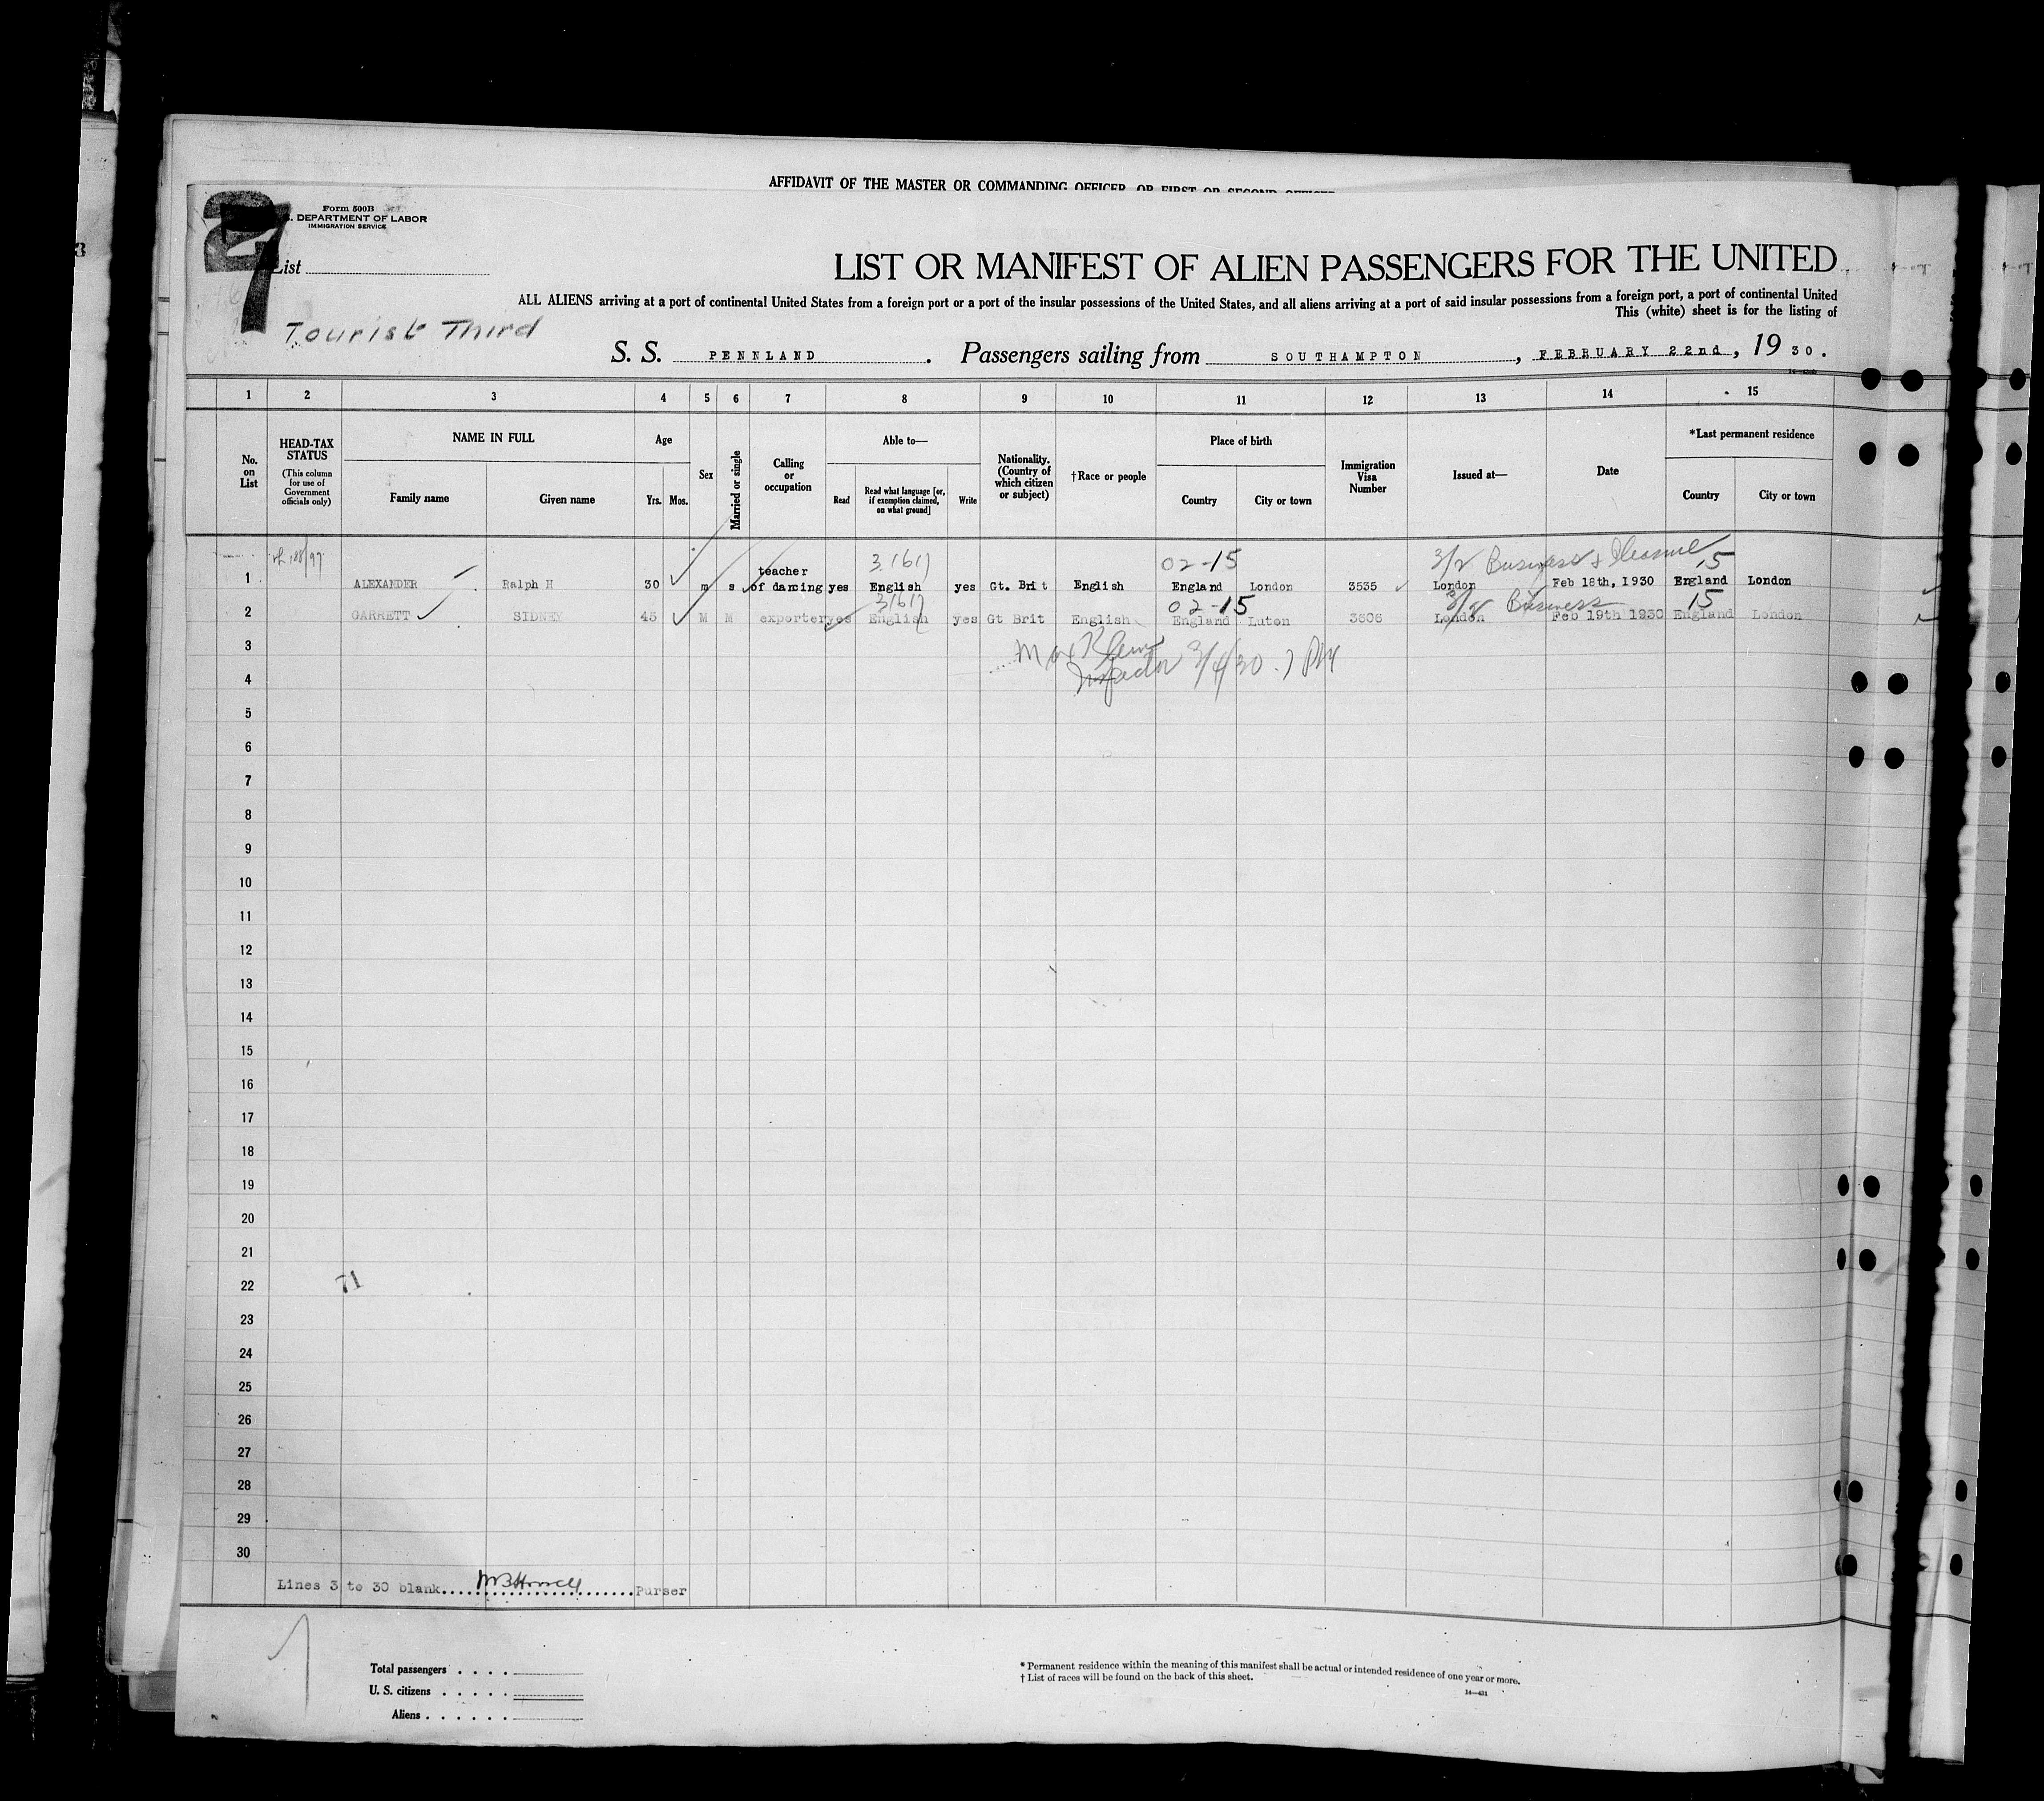 AFFIDAVIT OF THE MASTER OR COMMANDING OFFICER, OR FIRST OR SECOND OFFICER
Form 500B
DEPARTMENT OF LABOR
IMMIGRATION SERVICE
7
List
LIST OR MANIFEST OF ALIEN PASSENGERS FOR THE UNITED
ALL ALIENS arriving at a port of continental United States from a foreign port or a port of the insular possessions of the United States, and all aliens arriving at a port of said insular possessions from a foreign port, a port of continental United
This (white) sheet is for the listing of
Tourist Third
S. S. PENNLAND. Passengers sailing from SOUTHAMPTON, FEBRUARY 22nd, 1930.
1 2 3 4 5 6 7 8 9 10 11 12 13 14 15
No. on List
HEAD-TAX STATUS (This column for use of Government officials only)
NAME IN FULL
Family name Given name
Age
Yrs. Mos.
Sex
Married or single
Calling or occupation
Able to—
Read
Read what language [or, if exemption claimed, on what ground]
Write
Nationality. (Country of which citizen or subject)
†Race or people
Place of birth
Country City or town
Immigration Visa Number
Issued at—
Date
*Last permanent residence
Country City or town
3/2 Business & Pleasure
02-15 15
1 ALEXANDER Ralph H 30 m s teacher of dancing yes English yes Gt. Brit English England London 3535 London Feb 18th, 1930 England London
02-15 3/2 Business 15
2 GARRETT SIDNEY 45 M M exporter yes English yes Gt Brit English England Luton 3606 London Feb 19th 1930 England London
3
Inspector 3/4/30
4
5
6
7
8
9
10
11
12
13
14
15
16
17
18
19
20
21
22
71
23
24
25
26
27
28
29
30
Lines 3 to 30 blank.......................Purser
Total passengers . . . .
U. S. citizens . . . . .
Aliens . . . . . .
* Permanent residence within the meaning of this manifest shall be actual or intended residence of one year or more.
† List of races will be found on the back of this sheet.